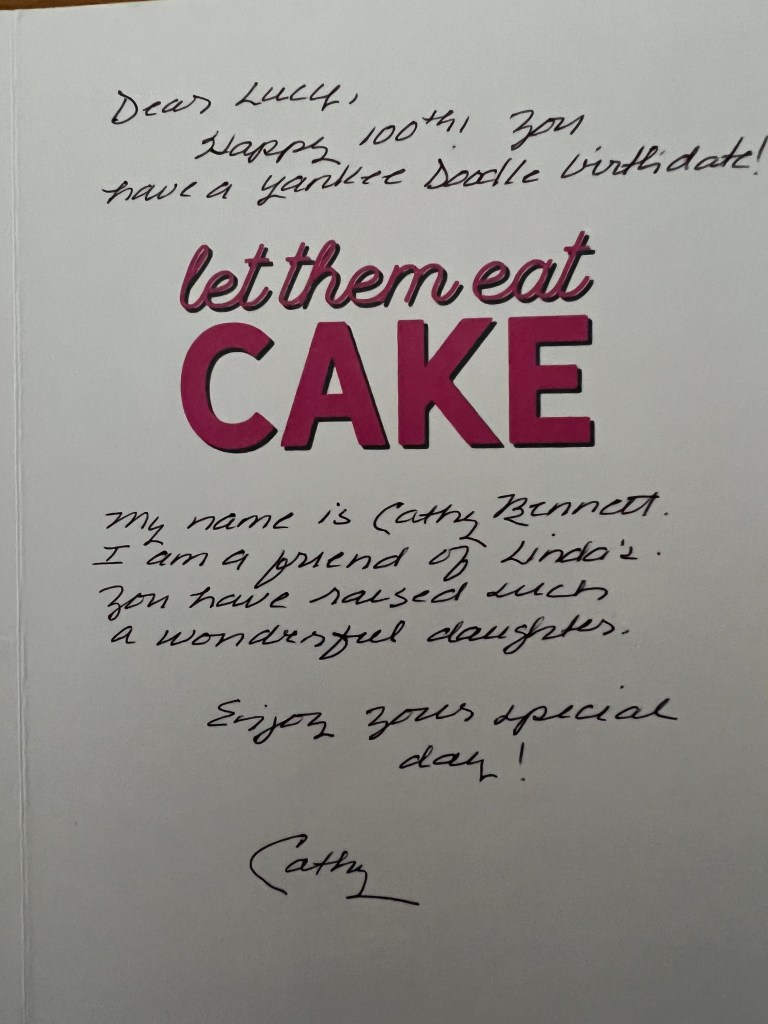 Dear Lucy,
Happy 100th! You
have a Yankee Doodle birthdate!
let them eat
CAKE
My name is Cathy Bennett.
I am a friend of Linda's.
You have raised such
a wonderful daughter.
Enjoy your special
day!
Cathy